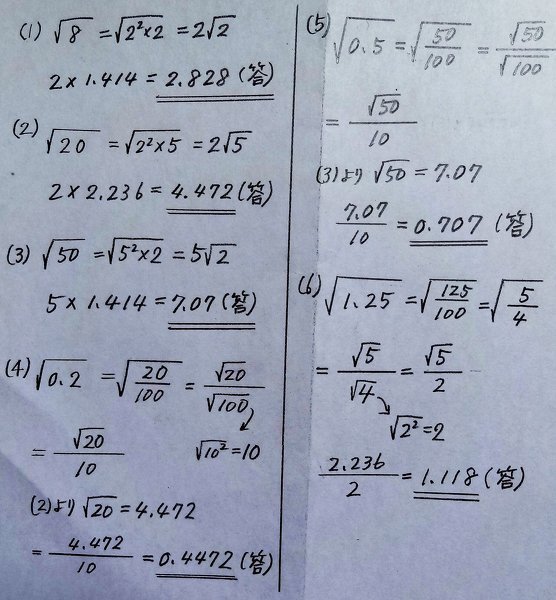 (1) √8 = √2²×2 = 2√2
2 × 1.414 = 2.828 (答)
(2) √20 = √2²×5 = 2√5
2 × 2.236 = 4.472 (答)
(3) √50 = √5²×2 = 5√2
5 × 1.414 = 7.07 (答)
(4) √0.2 = √20/100 = √20/√100
= √20/10 √10² = 10
(2)より √20 = 4.472
= 4.472/10 = 0.4472 (答)
(5) √0.5 = √50/100 = √50/√100
= √50/10
(3)より √50 = 7.07
7.07/10 = 0.707 (答)
(6) √1.25 = √125/100 = √5/4
= √5/√4 = √5/2
√2² = 2
2.236/2 = 1.118 (答)